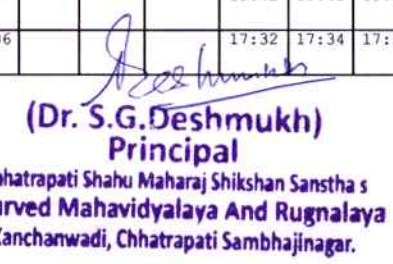 17:32 17:34 17:
(Dr. S.G.Deshmukh)
Principal
hatrapati Shahu Maharaj Shikshan Sanstha s
urved Mahavidyalaya And Rugnalaya
Kanchanwadi, Chhatrapati Sambhajinagar.